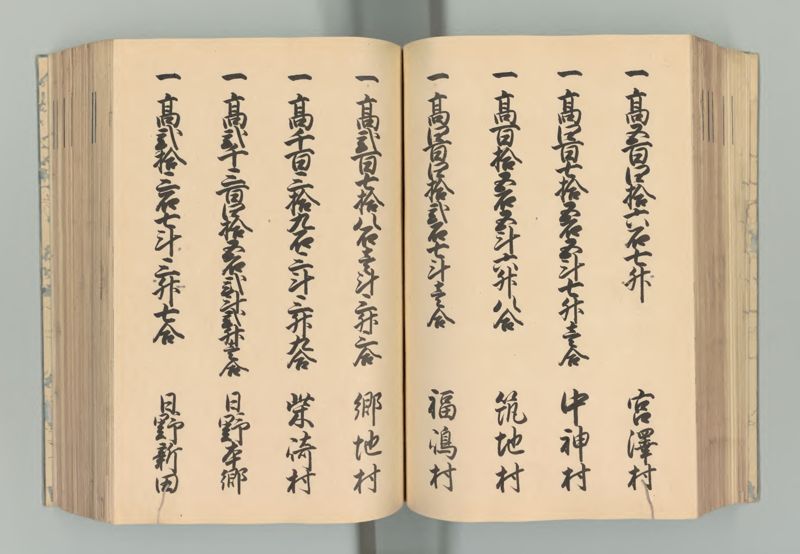 一 高五百四拾六石七升 宮澤村
一 高四百七拾五石五斗七升壱合 中神村
一 高百拾五石五斗六升八合 筑地村
一 高四百四拾弐石七斗壱合 福嶋村
一 高弐百七拾八石壱斗三升二合 郷地村
一 高千百三拾九石三斗三升九合 柴崎村
一 高弐千三百四拾五石弐斗弐升壱合 日野本郷
一 高弐拾三石七斗三升七合 日野新田